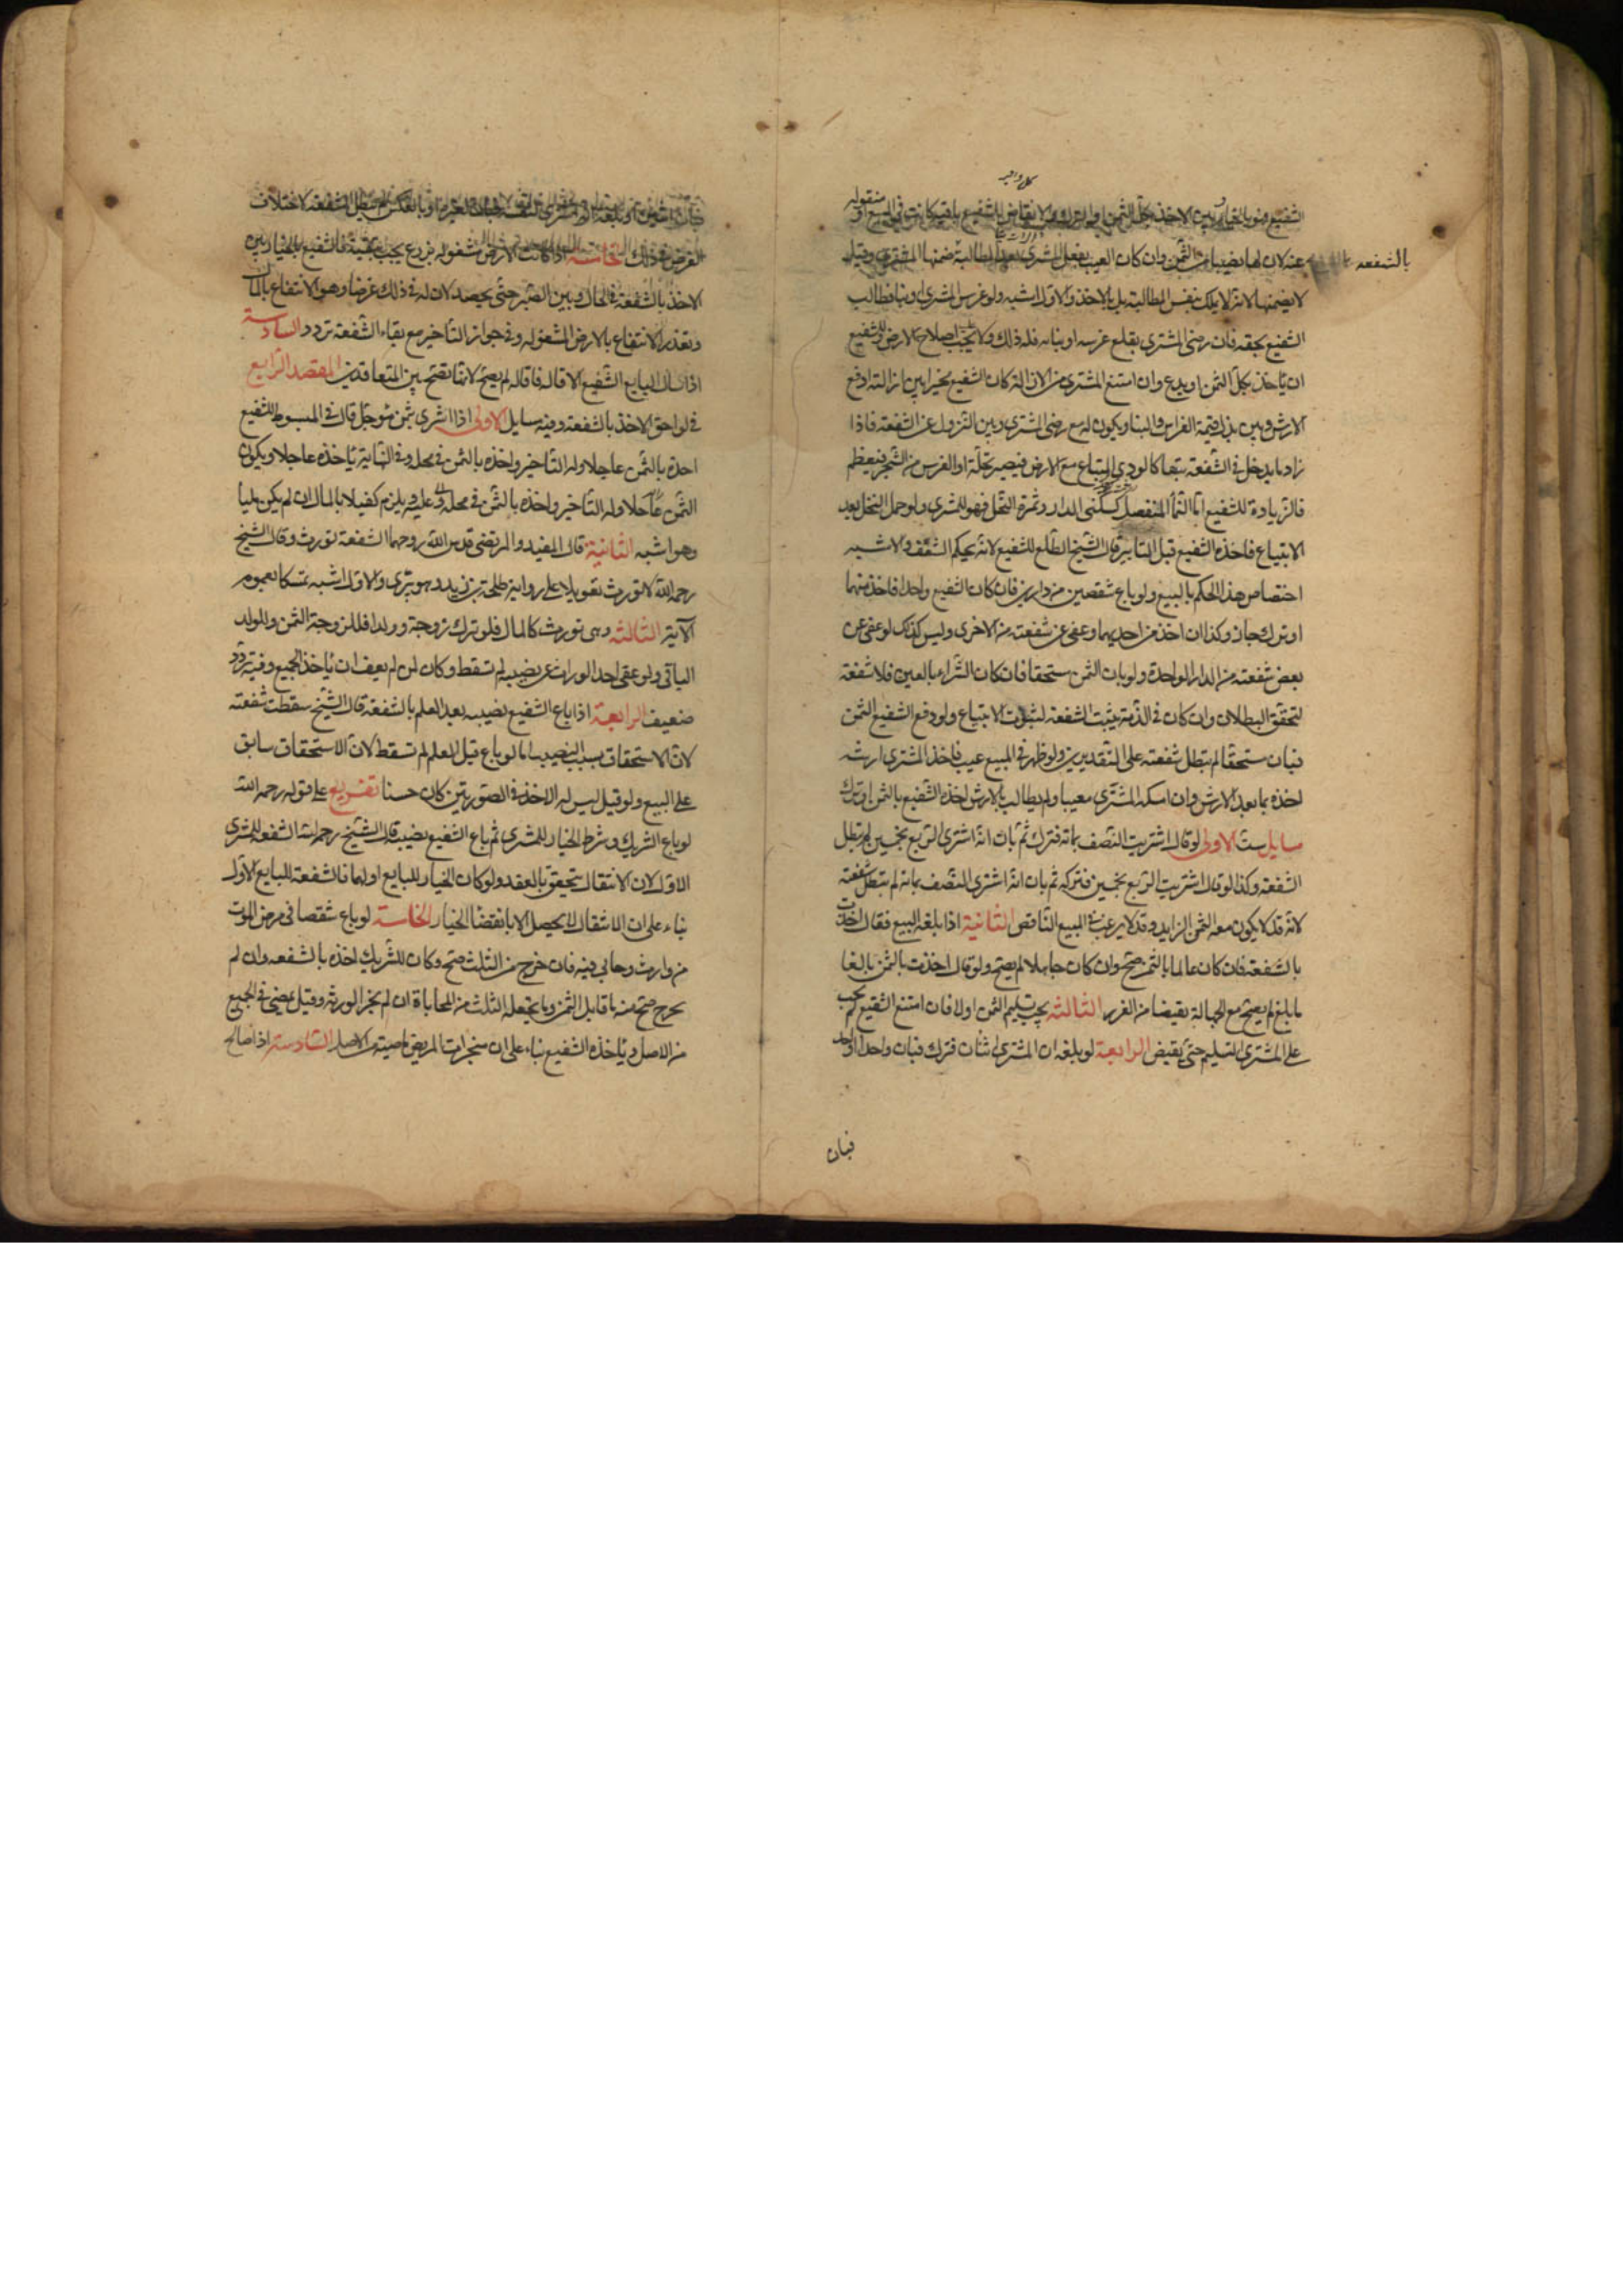 كل واحد
الشفيع فهو بالخيار بين الاخذ بكل الثمن او الترك والانقاض للشفيع باقية كانت في المبيع او منقوله
عنه لان لها نصيبا من الثمن وان كان العيب بفعل المشتري بعد المطالبة ضمنها المشتري وقيل
بالشفعه
لا يضمنها لانه لا يملك بنفس المطالبة بل بالاخذ والاول اشبه ولو غرس المشتري او بنا فطالب
الشفيع بحقه فان رضي المشتري بقلع غرسه او بنائه فله ذلك ولا يجب اصلاح الارض وللشفيع
ان ياخذ بكل الثمن او يدع وان امتنع المشتري من الازالة كان الشفيع مخيرا بين ازالته ودفع
الارش وبين بذل قيمة الغراس والبنا ويكون له مع رضي المشتري وبين النزول عن الشفعة فاذا
زاد ما يدخل في الشفعة تبعا كالودي المبتاع مع الارض فيصير نخلة او الغرس من الشجر فيعظم
فالزيادة للشفيع اما النما المنفصل كسكنى الدار وثمرة النخل فهو للمشتري ولو حمل النخل بعد
الابتياع فاخذه الشفيع قبل التابير قال الشيخ الطلع للشفيع لانه بحكم السقف والاشبه
اختصاص هذا الحكم بالبيع ولو باع شقصين من دارين فان كان الشفيع واحدا فاخذ منهما
او ترك جاز وكذا ان اخذ من احديهما وعفى عن شفعته من الاخرى وليس كذلك لو عفى عن
بعض شفعته من الدار الواحدة ولو بان الثمن مستحقا فان كان الشراء بالعين فلا شفعة
لتحقق البطلان وان كان في الذمة يثبت الشفعة لثبوت الابتياع ولو دفع الشفيع الثمن
فبان مستحقا لم تبطل شفعته على التقديرين ولو ظهر في المبيع عيب فاخذ المشتري ارشه
اخذه بما بعد الارش وان امسكه المشتري معيبا ولم يطالب بالارش اخذه الشفيع بالثمن او ترك
مسايل ست الاولى لو قال اشتريت النصف بمائة فترك ثم بان انه اشترى الربع بخمسين لم تبطل
الشفعة وكذا لو قال اشتريت الربع بخمسين فتركه ثم بان انه اشترى النصف بمائة لم تبطل شفعته
لانه قد لا يكون معه الثمن الزايد وقد لا يرغب في المبيع الناقص الثانية اذا بلغه البيع فقال اخذت
بالشفعة فان كان عالما بالثمن صح وان كان جاهلا لم يصح ولو قال اخذت بالثمن بالغا
ما بلغ لم يصح مع الجهالة تقيضا من الغرر الثالثة يجب تسليم الثمن اولا فان امتنع الشفيع لم يجب
على المشتري التسليم حتى يقبض الرابعة لو بلغه ان المشتري اثنان فترك فبان واحدا او واحد
فبان
فبان اثنين او بلغه
الغرض في ذلك الخامسة اذا كانت الارض مشغوله بزرع يجب تبقيته فالشفيع بالخيار بين
الاخذ بالشفعة في الحال وبين الصبر حتى يحصد لان له في ذلك غرضا وهو الانتفاع بالمال
وتعذر الانتفاع بالارض المشغوله وفي جواز التاخير مع بقاء الشفعة تردد السادسة
اذا سال البايع الشفيع الاقالة فاقاله لم يصح لانها تصح بين المتعاقدين المقصد الرابع
في لواحق الاخذ بالشفعة وفيه مسايل الاولى اذا اشترى بثمن مؤجل قال في المبسوط للشفيع
اخذه بالثمن عاجلا وله التاخير واخذه بالثمن في محله وفي النهاية ياخذه عاجلا ويكون
الثمن عاجلا وله التاخير واخذه بالثمن في محله عليه ويلزم كفيلا بالمال ان لم يكن مليا
وهو اشبه الثانية قال المفيد والمرتضى قدس الله روحهما الشفعة تورث وقال الشيخ
رحمه الله لا تورث تعويلا على رواية طلحة بن زيد وهو بتري والاول اشبه تمسكا بعموم
الآية الثالثة وهي تورث كالمال فلو ترك زوجة وولدا فللزوجة الثمن وللولد
الباقي ولو عفى احد الوراث عن نصيبه لم تسقط وكان لمن لم يعف ان ياخذ الجميع وفيه تردد
ضعيف الرابعة اذا باع الشفيع نصيبه بعد العلم بالشفعة قال الشيخ سقطت شفعته
لان الاستحقاق بسبب النصيب اما لو باع قبل العلم لم تسقط لان الاستحقاق سابق
على البيع ولو قيل ليس له الاخذ في الصورتين كان حسنا تفريع على قوله رحمه الله
لو باع الشريك وشرط الخيار للمشتري ثم باع الشفيع نصيبه قال الشيخ رحمه الله الشفعة للمشتري
الاول لان الانتقال يتحقق بالعقد ولو كان الخيار للبايع او لهما فالشفعة للبايع الاول
بناء على ان الانتقال لا يحصل الا بانقضا الخيار الخامسة لو باع شقصا في مرض الموت
من وارث وحابى فيه فان خرج من الثلث صح وكان للشريك اخذه بالشفعه وان لم
يخرج صح منه ما قابل الثمن وما يحتمله الثلث من المحاباة ان لم يجز الورثه وقيل يمضي في الجميع
من الاصل وياخذه الشفيع بناء على ان منجزات المريض ماضية من الاصل السادسة اذا صالح